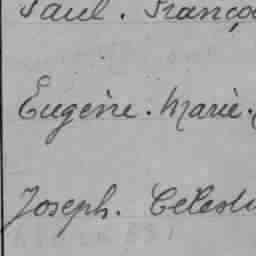 Paul. Franço
Eugène. Marie.
Joseph. Célest